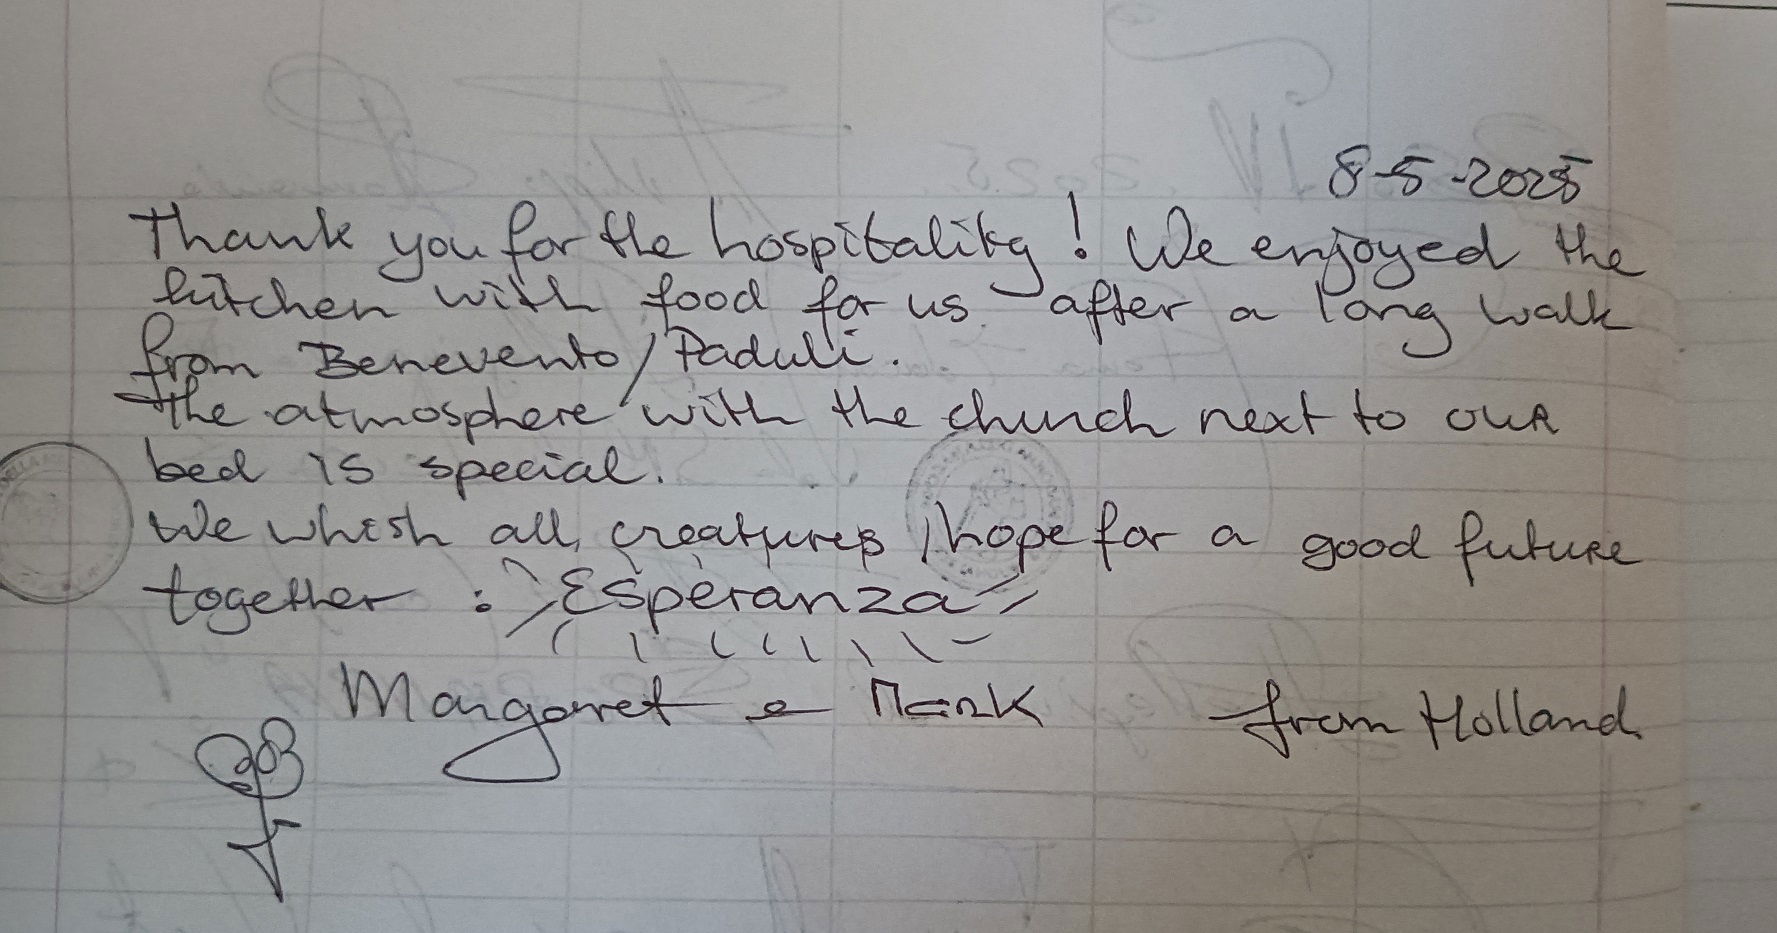 8-5-2025
Thank you for the hospitality! We enjoyed the
kitchen with food for us after a long walk
from Benevento/Paduli.
the atmosphere with the church next to our
bed is special.
We whish all creatures, hope for a good future
together : Esperanza
Margaret e Mark from Holland